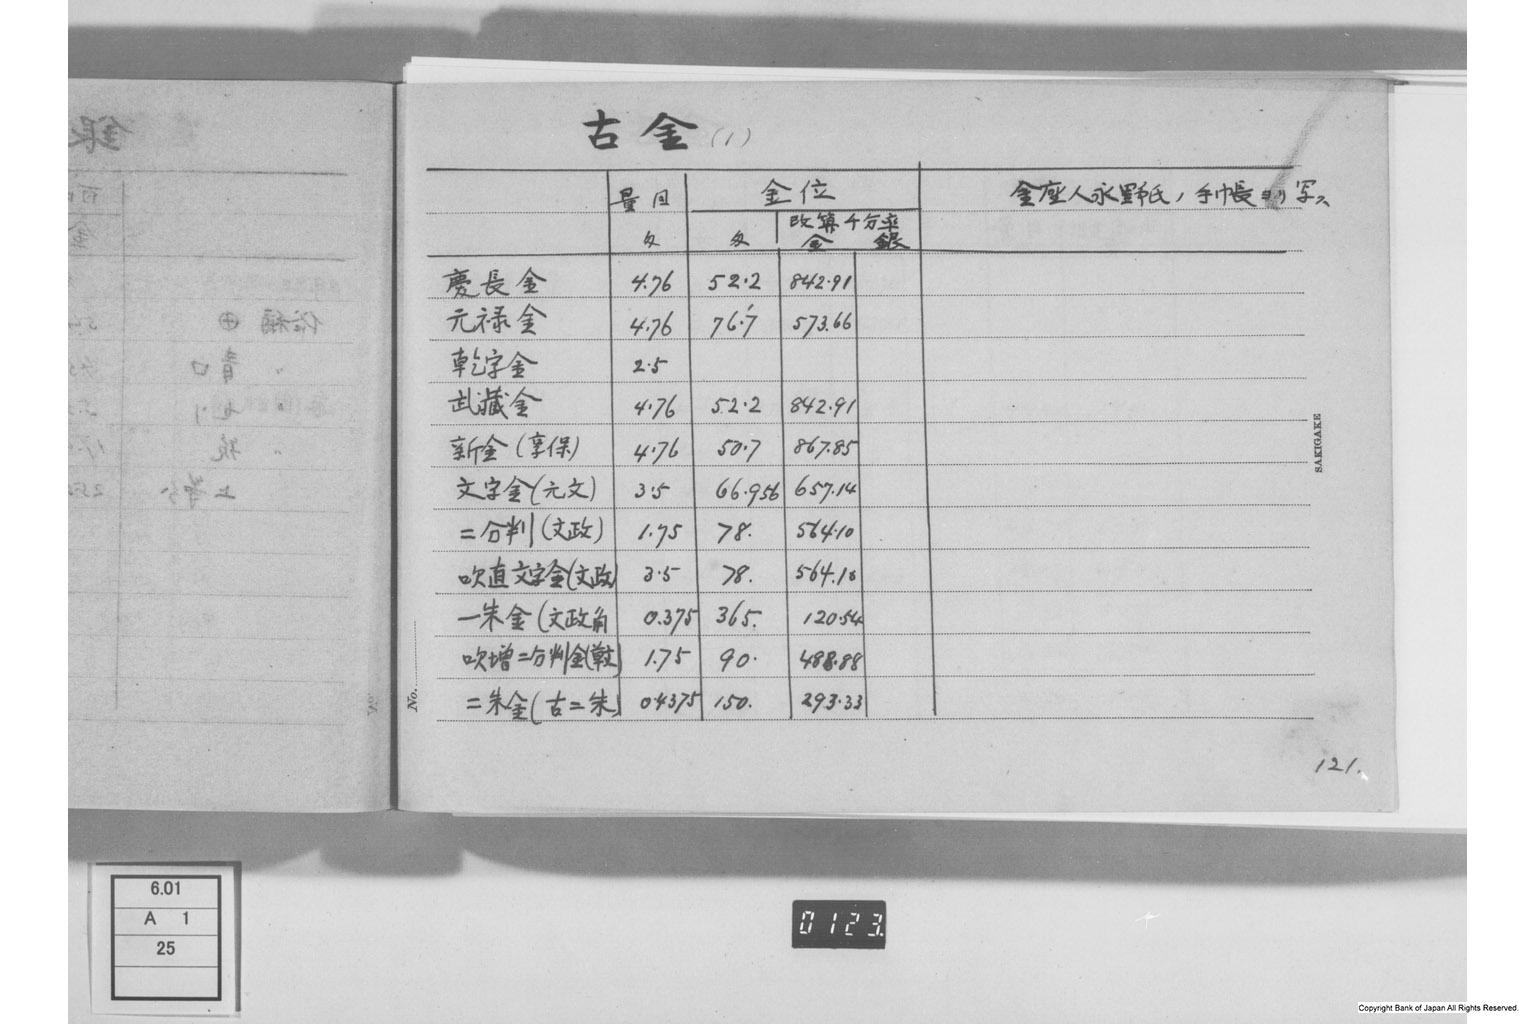 古金 (1)
量目 金位 金座人永野氏ノ手帳ヨリ写ス
匁 匁 改算千分率
金 銀
慶長金 4.76 52.2 842.91
元禄金 4.76 76.7 573.66
乾字金 2.5
武蔵金 4.76 52.2 842.91
新金(享保) 4.76 50.7 867.85
文字金(元文) 3.5 66.956 657.14
二分判(文政) 1.75 78. 564.10
吹直文字金(文政) 3.5 78. 564.10
一朱金(文政角 0.375 365. 120.54
吹増二分判金(草文) 1.75 90. 488.88
二朱金(古二朱) 0.4375 150. 293.33
SAKIGAKE
No.
121.
6.01
A 1
25
0123.
Copyright Bank of Japan All Rights Reserved.